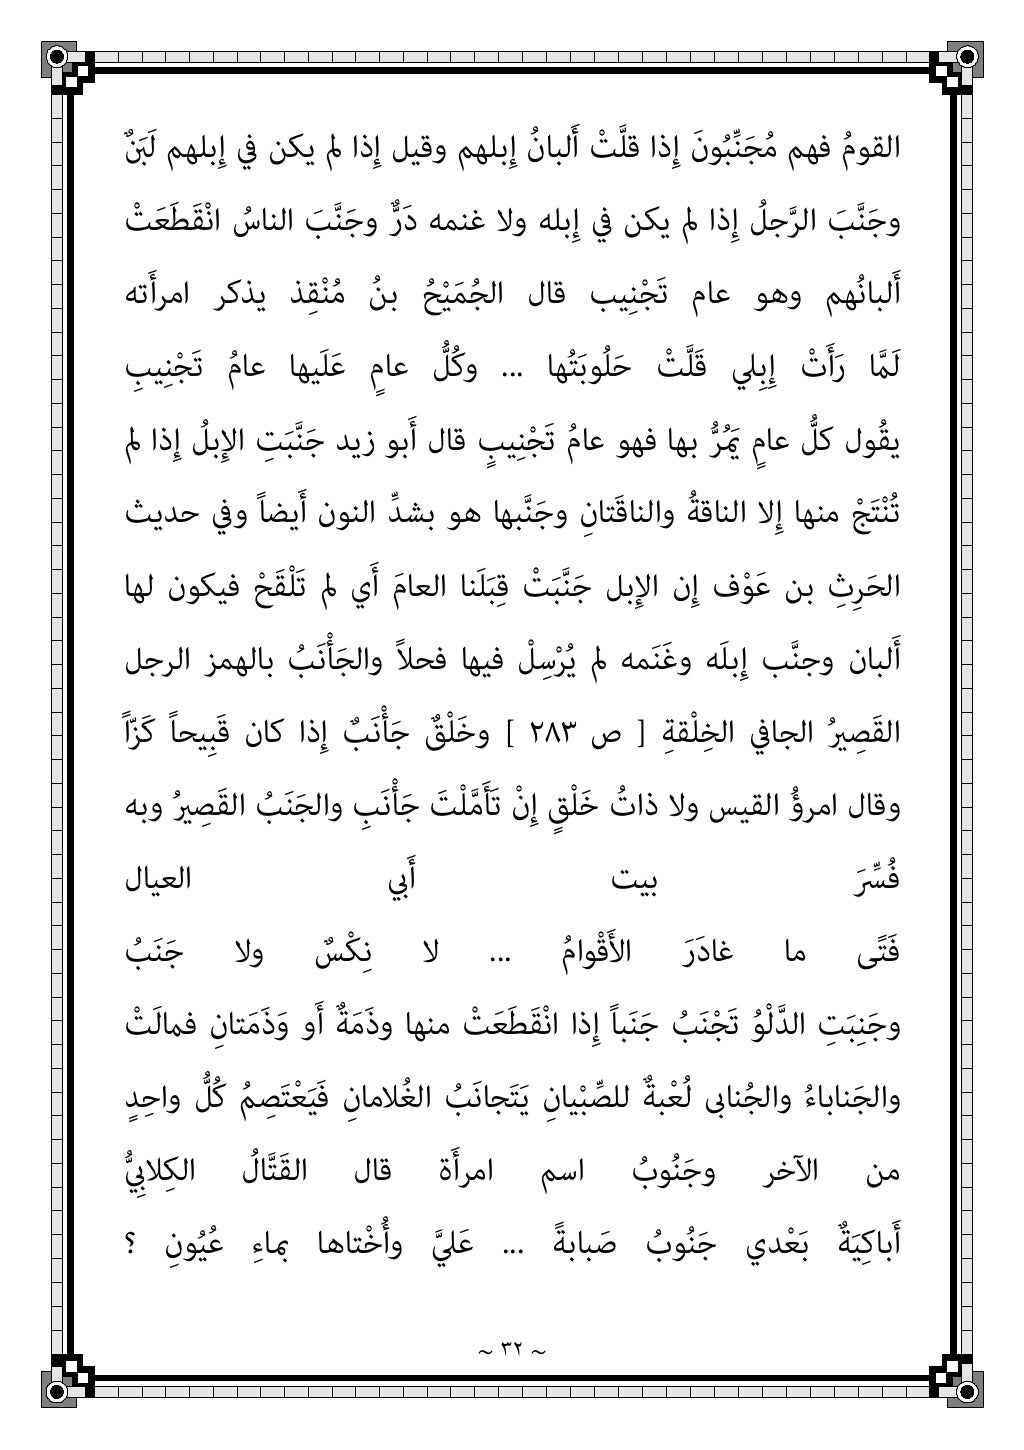 القومُ فهم مُجَنِّبُونَ إِذا قلَّتْ أَلبانُ إِبلهم وقيل إِذا لم يكن في إِبلهم لَبَنٌ
وجَنَّبَ الرَّجلُ إِذا لم يكن في إِبله ولا غنمه دَرٌّ وجَنَّبَ الناسُ انْقَطَعَتْ
أَلبانُهم وهو عام تَجْنِيب قال الجُمَيْحُ بنُ مُنْقِذ يذكر امرأَته
لَمَّا رَأَتْ إِبِلي قَلَّتْ حَلُوبَتُها ... وكُلُّ عامٍ عَلَيها عامُ تَجْنِيبِ
يقُول كلُّ عامٍ يَمُرُّ بها فهو عامُ تَجْنِيبٍ قال أَبو زيد جَنَّبَتِ الإِبلُ إِذا لم
تُنْتَجْ منها إِلا الناقةُ والناقَتانِ وجَنَّبها هو بشدِّ النون أَيضاً وفي حديث
الحَرِثِ بن عَوْف إِن الإِبل جَنَّبَتْ قِبَلَنا العامَ أَي لم تَلْقَحْ فيكون لها
أَلبان وجنَّب إِبلَه وغَنَمه لم يُرْسِلْ فيها فحلاً والجَأْنَبُ بالهمز الرجل
القَصِيرُ الجافي الخِلْقةِ [ ص ٢٨٣ ] وخَلْقٌ جَأْنَبٌ إِذا كان قَبِيحاً كَزّاً
وقال امرؤُ القيس ولا ذاتُ خَلْقٍ إِنْ تَأَمَّلْتَ جَأْنَبِ والجَنَبُ القَصِيرُ وبه
فُسِّرَ بيت أَبي العيال
فَتًى ما غادَرَ الأَقْوامُ ... لا نِكْسٌ ولا جَنَبُ
وجَنِبَتِ الدَّلْوُ تَجْنَبُ جَنَباً إِذا انْقَطَعَتْ منها وذَمَةٌ أَو وَذَمَتانِ فمالَتْ
والجَناباءُ والجُنابى لُعْبةٌ للصِّبْيانِ يَتَجانَبُ الغُلامانِ فَيَعْتَصِمُ كُلُّ واحِدٍ
من الآخر وجَنُوبُ اسم امرأَة قال القَتَّالُ الكِلابِيُّ
أَباكِيَةٌ بَعْدي جَنُوبُ صَبابةً ... عَليَّ وأُخْتاها بماءِ عُيُونِ ؟
~ ٣٢ ~